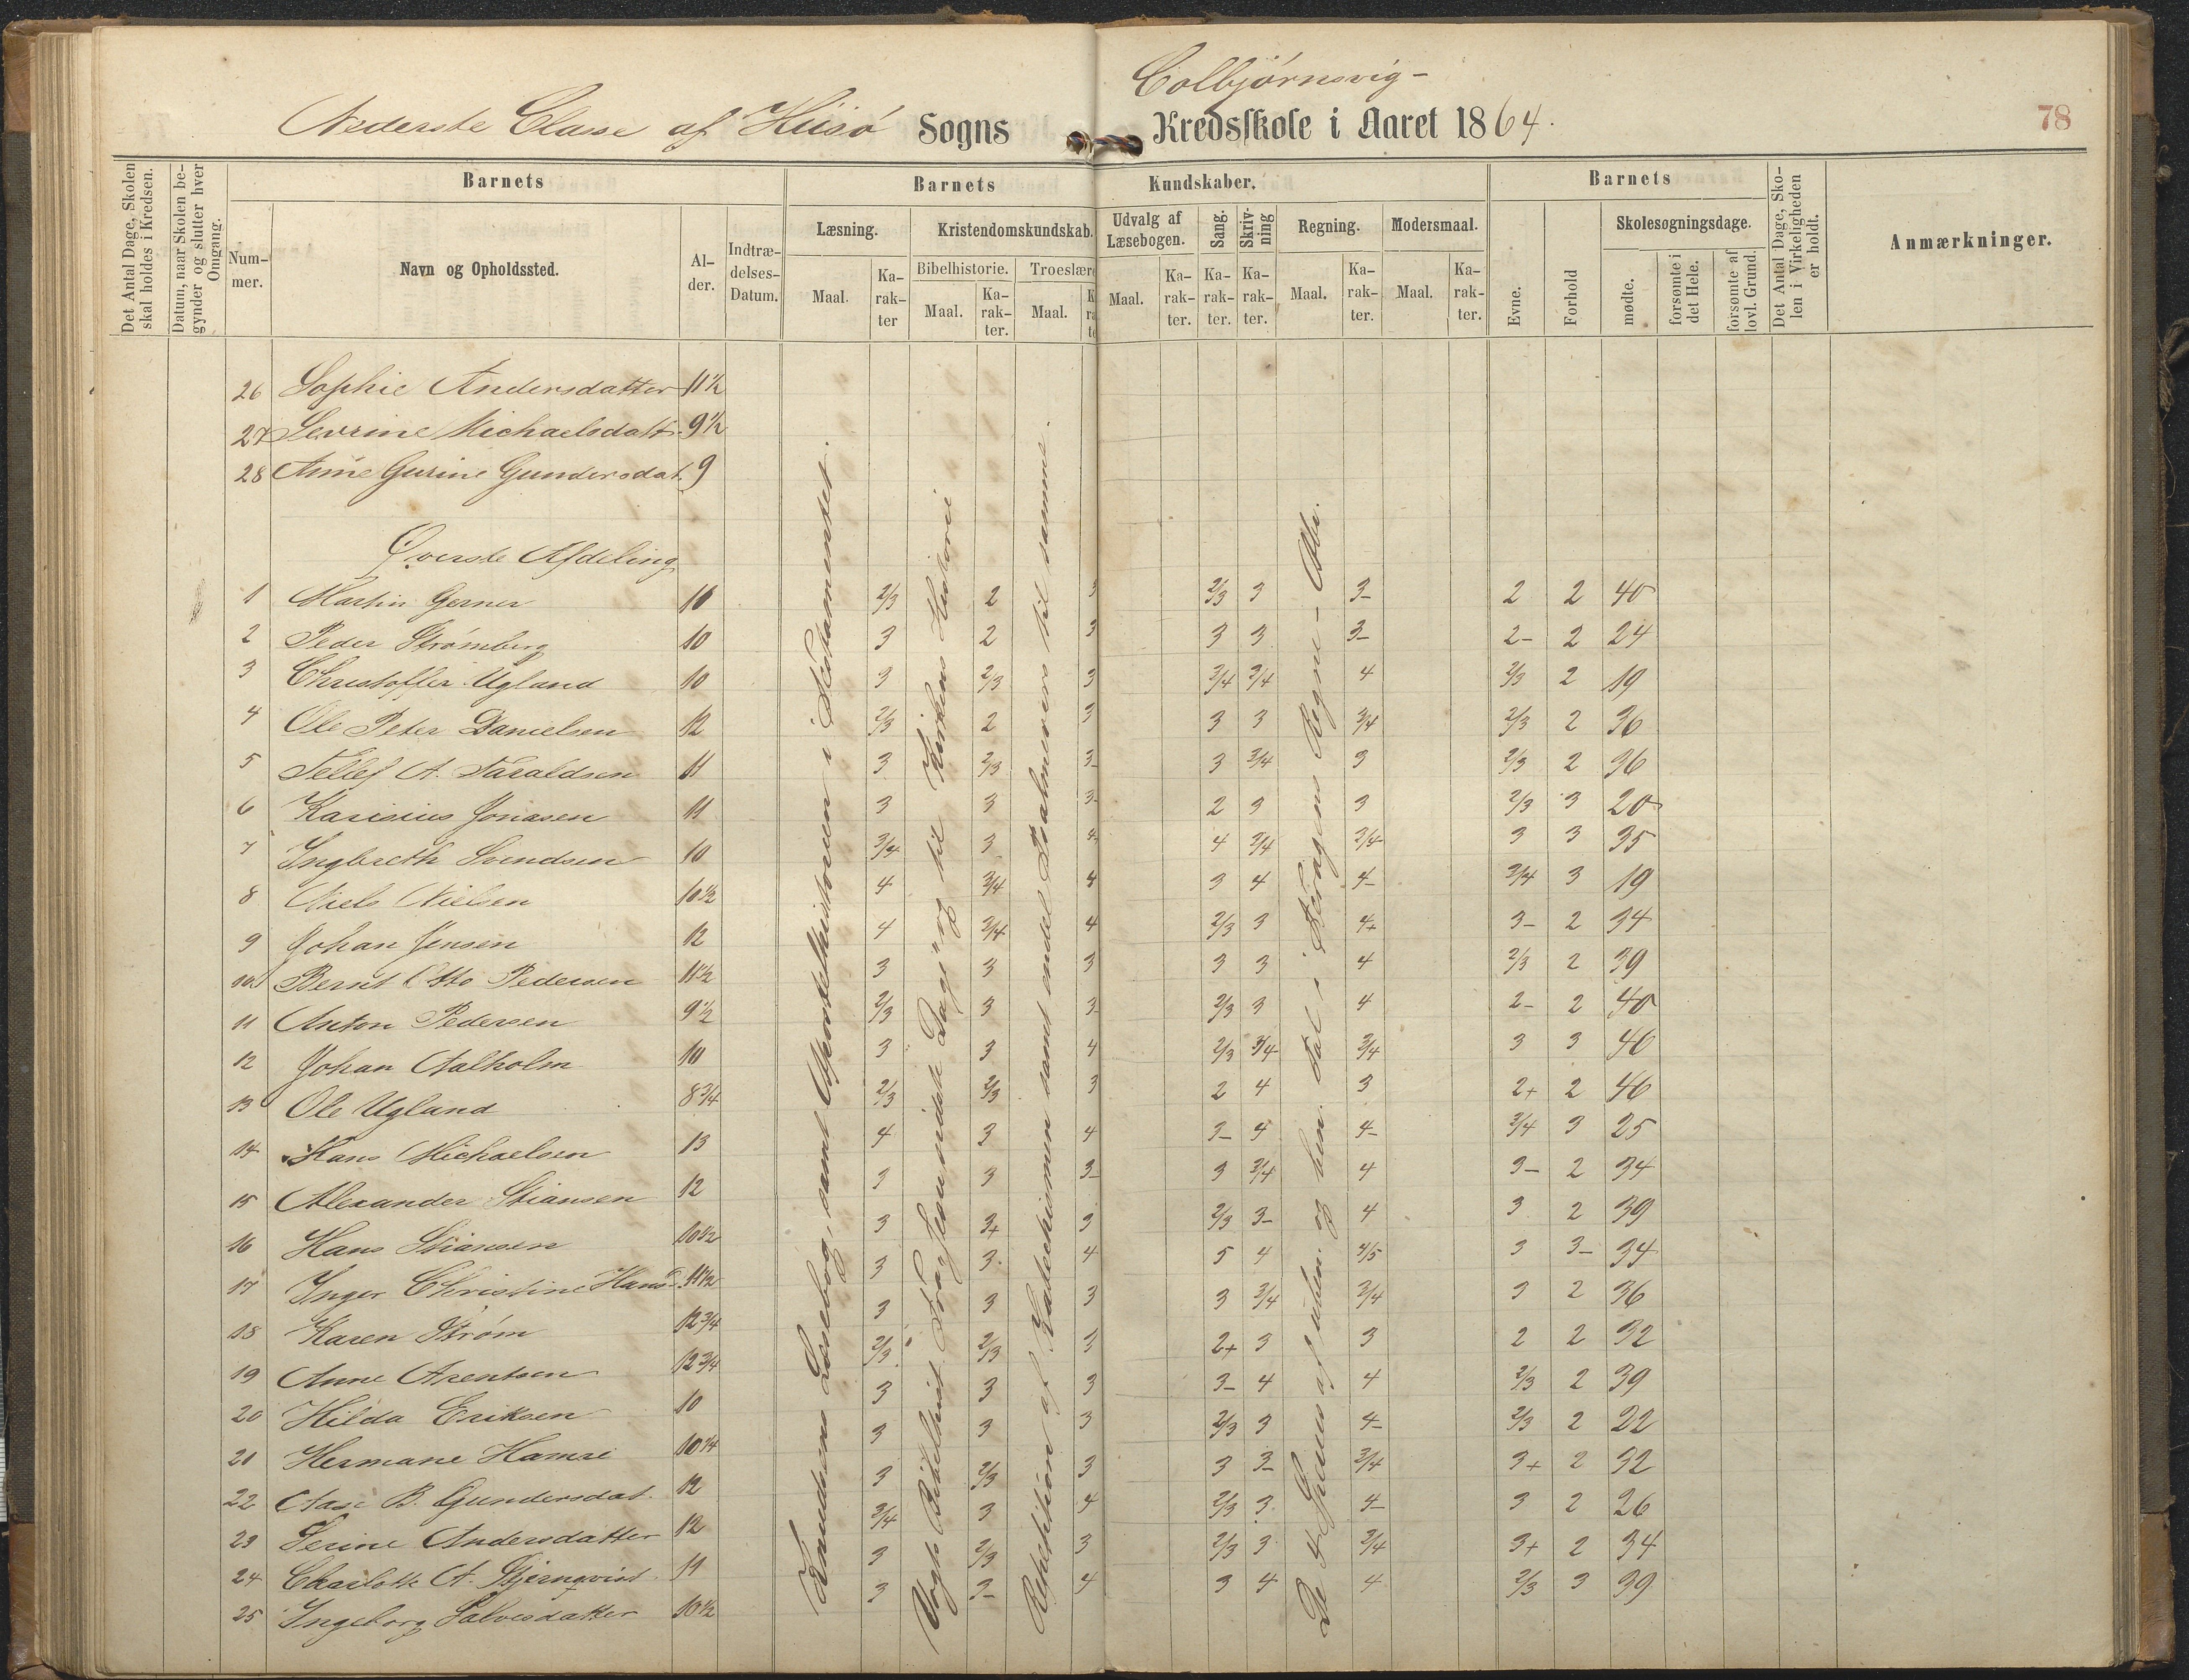 Colbjørnsvig-
Nederste Classe af Hiisø Sogns Kredsskole i Aaret 1864.
78
Det Antal Dage, Skolen skal holdes i Kredsen.
Datum, naar Skolen begynder og slutter hver Omgang.
Barnets
Nummer.
Navn og Opholdssted.
Alder.
Indtrædelses-Datum.
Barnets Kundskaber.
Læsning.
Maal.
Karakter
Kristendomskundskab.
Bibelhistorie.
Maal.
Karakter.
Troeslære
Maal.
Udvalg af Læsebogen.
Maal.
Karakter.
Sang.
Karakter.
Skrivning
Karakter.
Regning.
Maal.
Karakter.
Modersmaal.
Maal.
Karakter.
Barnets
Evne.
Forhold
Skolesøgningsdage.
mødte.
forsømte i det Hele.
forsømte af lovl. Grund.
Det Antal Dage, Skolen i Virkeligheden er holdt.
Anmærkninger.
26 Sophie Andersdatter 11½
27 Sevrine Michaelsdatt. 9½
28 Anne Gurine Gundersdat. 9
Øverste Afdeling
1 Martin Gerner 10 2/3 2 3 2/3 3 3- 2 2 40
2 Peder Strømberg 10 3 2 3 3 3 3- 2- 2 24
3 Christoffer Ugland 10 3 2/3 3 3/4 3/4 4 2/3 2 19
4 Ole Peter Danielsen 12 2/3 2 3 3 3 3/4 2/3 2 36
5 Tellef A. Taraldsen 11 3 2/3 3- 3 3/4 3 2/3 2 36
6 Karisius Jonasen 11 3 3 3- 2 3 3 2/3 3 20
7 Ingbreth Svendsen 10 3/4 3 4 4 3/4 3/4 3 3 35
8 Niels Nielsen 10½ 4 3/4 4 3 4 4- 3/4 3 19
9 Johan Jensen 12 4 3/4 4 2/3 3 4+ 3- 2 34
10 Bernt Otto Pedersen 11½ 3 3 3 3 3 4 2/3 2 39
11 Anton Pedersen 9½ 2/3 3 3- 2/3 3 4 2- 2 40
12 Johan Aalholm 10 3 3 4 2/3 3/4 3/4 3 3 40
13 Ole Ugland 8¾ 2/3 2/3 3 2 4 3 2+ 2 40
14 Hans Michaelsen 13 4 3 4 3- 4 4- 3/4 3 25
15 Alexander Stiansen 12 3 3 3- 3 3/4 4 3- 2 34
16 Hans Stiansen 10½ 3 3+ 3 2/3 3- 4 3 2 39
17 Inger Christine Hansd. 11½ 3 3. 4 5 4 4/5 3 3- 34
18 Karen Strøm 12¾ 3 3 3 3 3/4 3/4 3 2 36
19 Anne Arentsen 12¾ 2/3 2/3 3 2+ 3 3 2 2 32
20 Hilda Eriksen 10 3 3 3 3- 4 4 2/3 2 39
21 Hermane Hamre 10¼ 3 3 3 2/3 3 4- 2/3 2 22
22 Aase B. Gundersdat. 12 3 2/3 3 3 3- 3/4 3+ 2 32
23 Serine Andersdatter 12 3/4 3 4 2/3 3 4- 3 2 26
24 Charlotte A. Stjernqvist 11 3 2/3 3 2/3 3 3/4 3+ 2 34
25 Ingeborg Salvesdatter 10½ 3 3- 4 3 4 4 2/3 3 39
Knudsens Læsebog, samt Apostelhistorien i Testamentet.
Vogts Bibelhist. fra Jesu sidste Dage og til Kirkens Historie
Repetition af Katechismen samt endel Psalmevers til samme.
De 4 Species af uben. og ben. Tal i Skragens Regne-Abc.